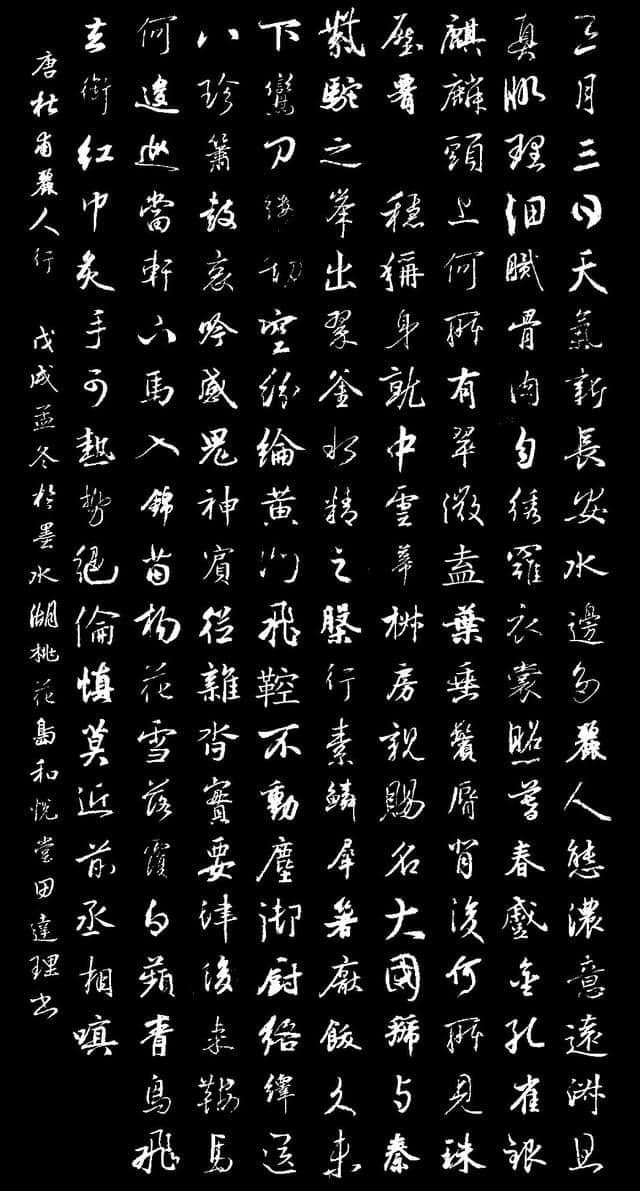 三月三日天氣新長安水邊多麗人態濃意遠淑且
真肌理細膩骨肉匀绣羅衣裳照暮春蹙金孔雀銀
麒麟頭上何所有翠微盍葉垂鬢唇背後何所見珠
壓穩稱身就中雲幕椒房親賜名大國虢与秦
紫駝之峯出翠釜水精之盤行素鱗犀箸厭飫久未
下鸞刀縷切空紛綸黄門飛鞚不動塵御厨絡繹送
八珍簫鼓哀吟感鬼神賓從雜沓實要津後来鞍馬
何逡巡當軒下馬入錦茵楊花雪落覆白蘋青鳥飛
去銜紅巾炙手可熱勢絕倫慎莫近前丞相嗔
唐杜甫麗人行 戊戌孟冬於墨水湖桃花島和悦堂田達理书